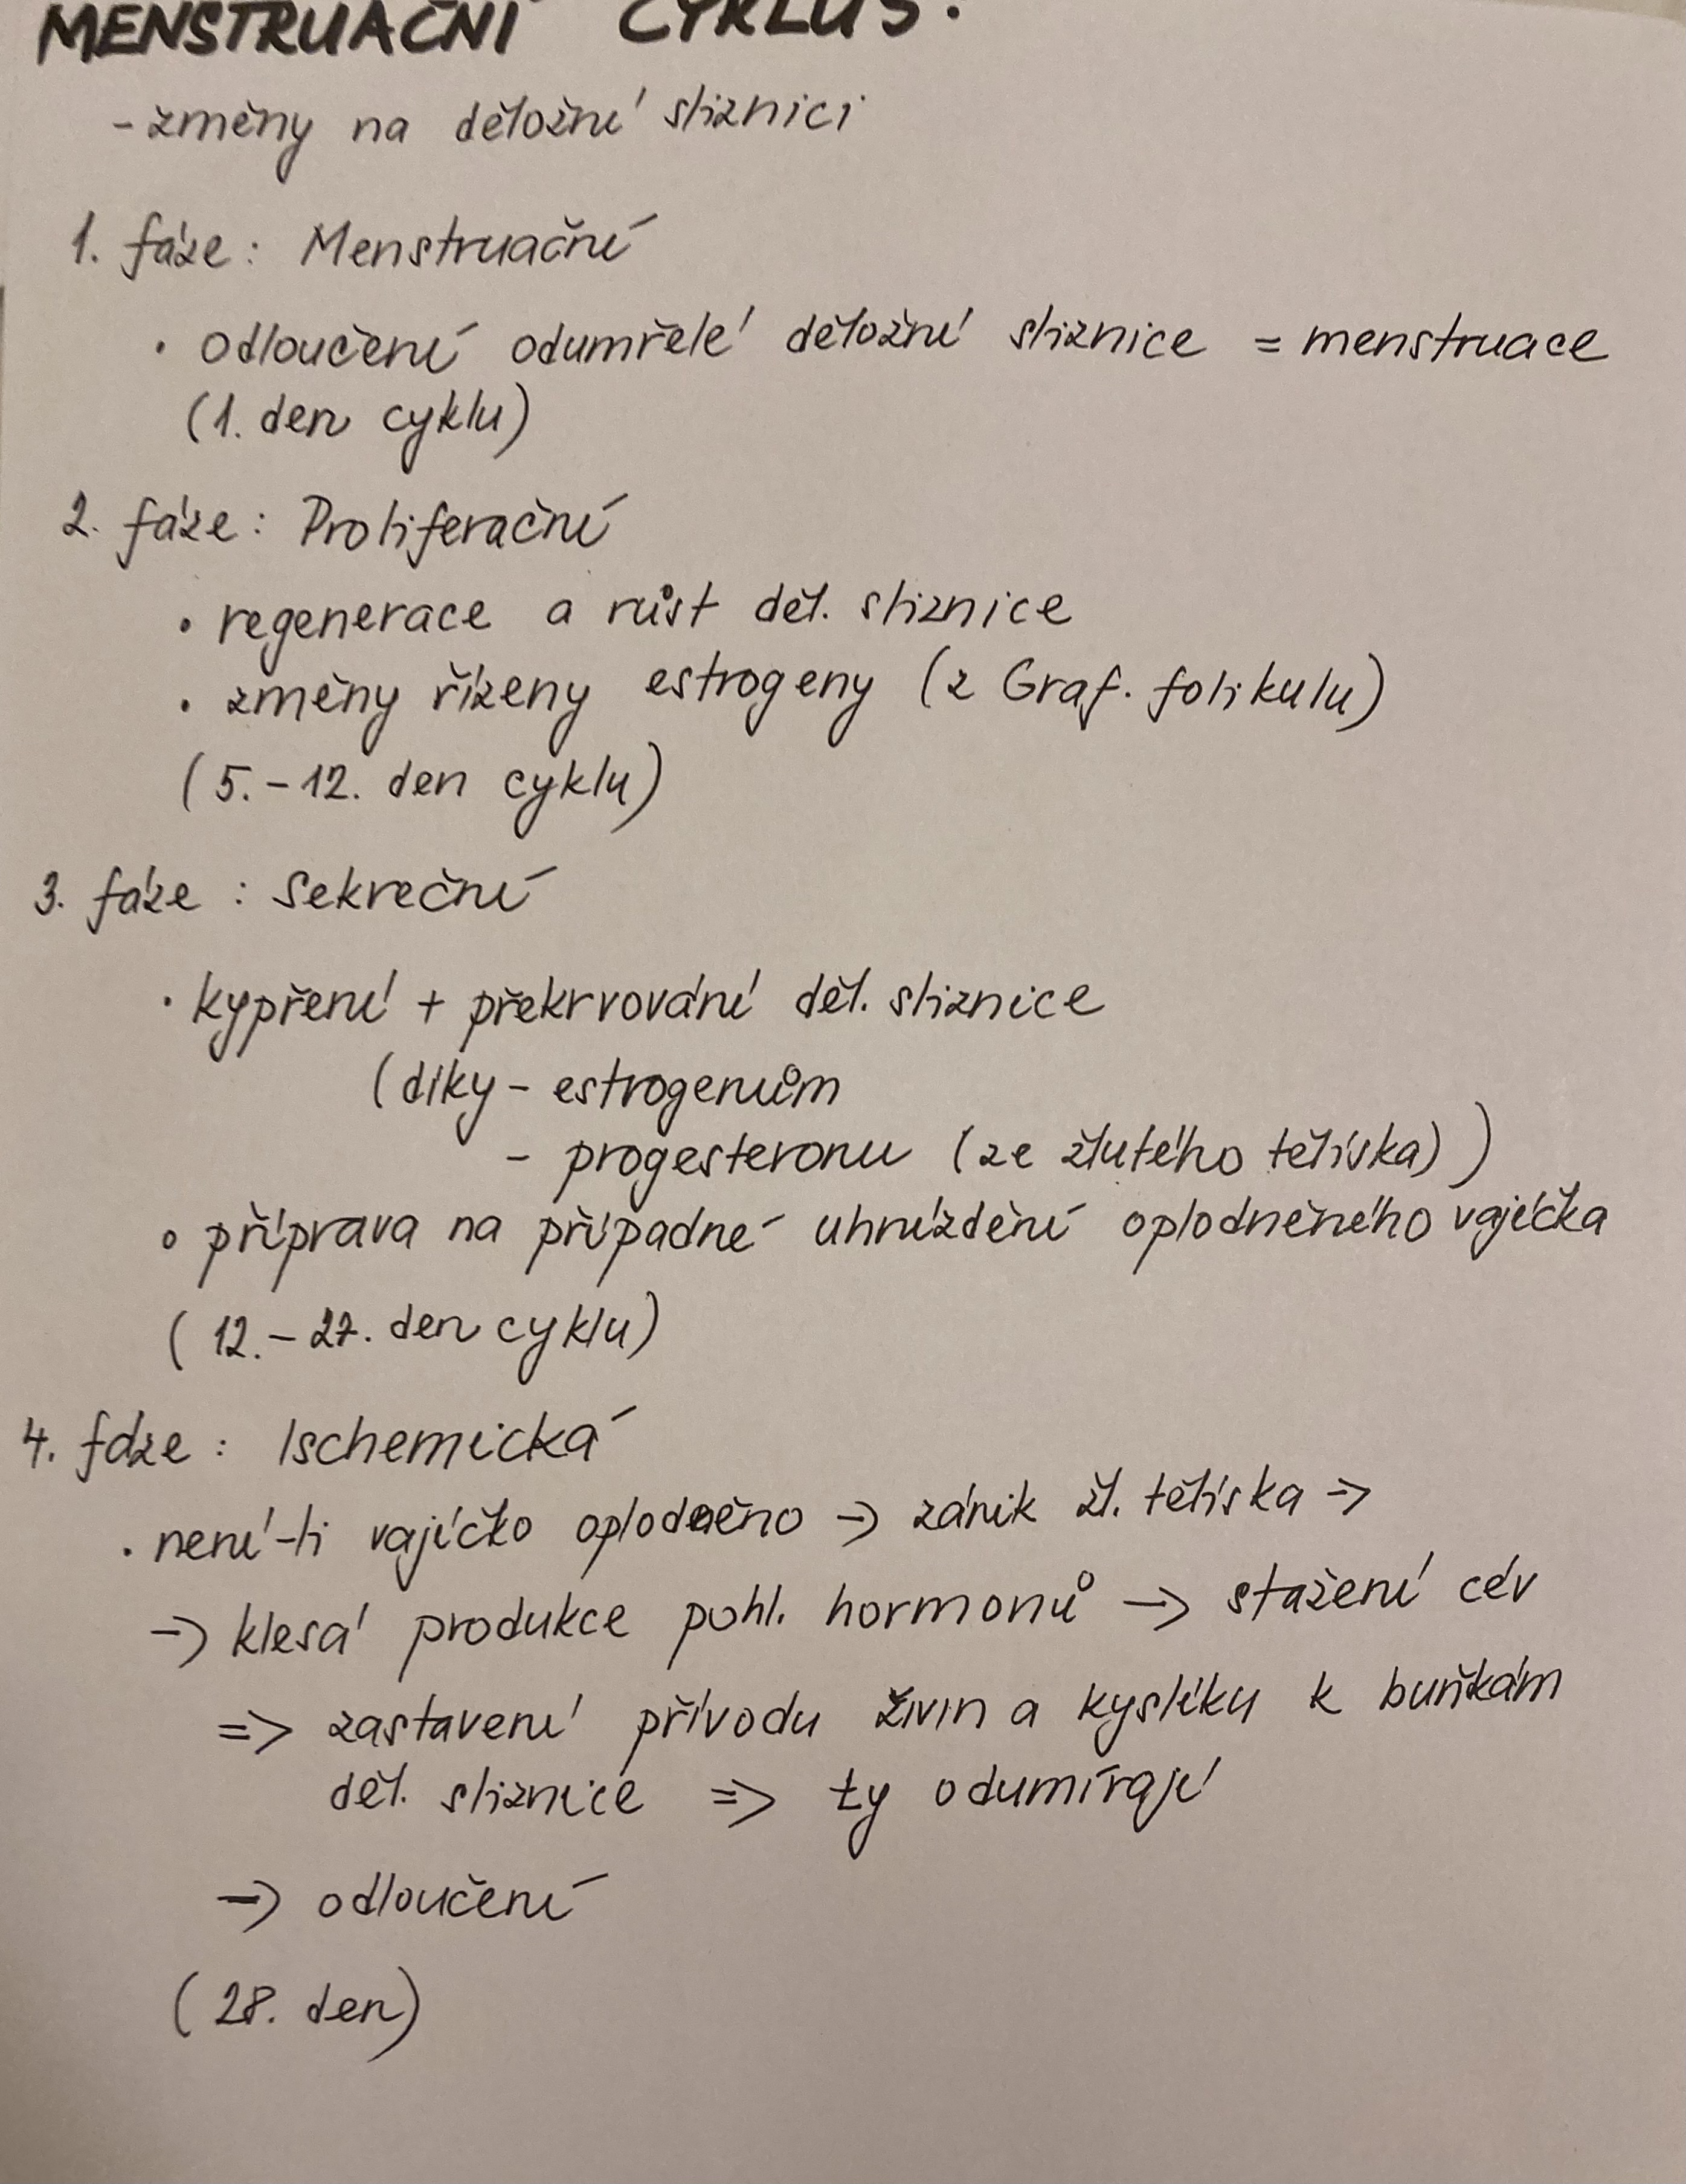 MENSTRUAČNÍ CYKLUS:
- změny na děložní sliznici
1. fáze: Menstruační
• odloučení odumřelé děložní sliznice = menstruace
(1. den cyklu)
2. fáze: Proliferační
• regenerace a růst děl. sliznice
• změny řízeny estrogeny (z Graf. folikulu)
(5.-12. den cyklu)
3. fáze: Sekreční
• kypření + překrvování děl. sliznice
(díky - estrogenům
- progesteronu (ze žlutého tělíska))
• příprava na případné uhnízdění oplodněného vajíčka
(12.-27. den cyklu)
4. fáze: Ischemická
• není-li vajíčko oplodněno -> zánik žl. tělíska ->
-> klesá produkce pohl. hormonů -> stažení cév
=> zastavení přívodu živin a kyslíku k buňkám
děl. sliznice => ty odumírají
-> odloučení
(28. den)